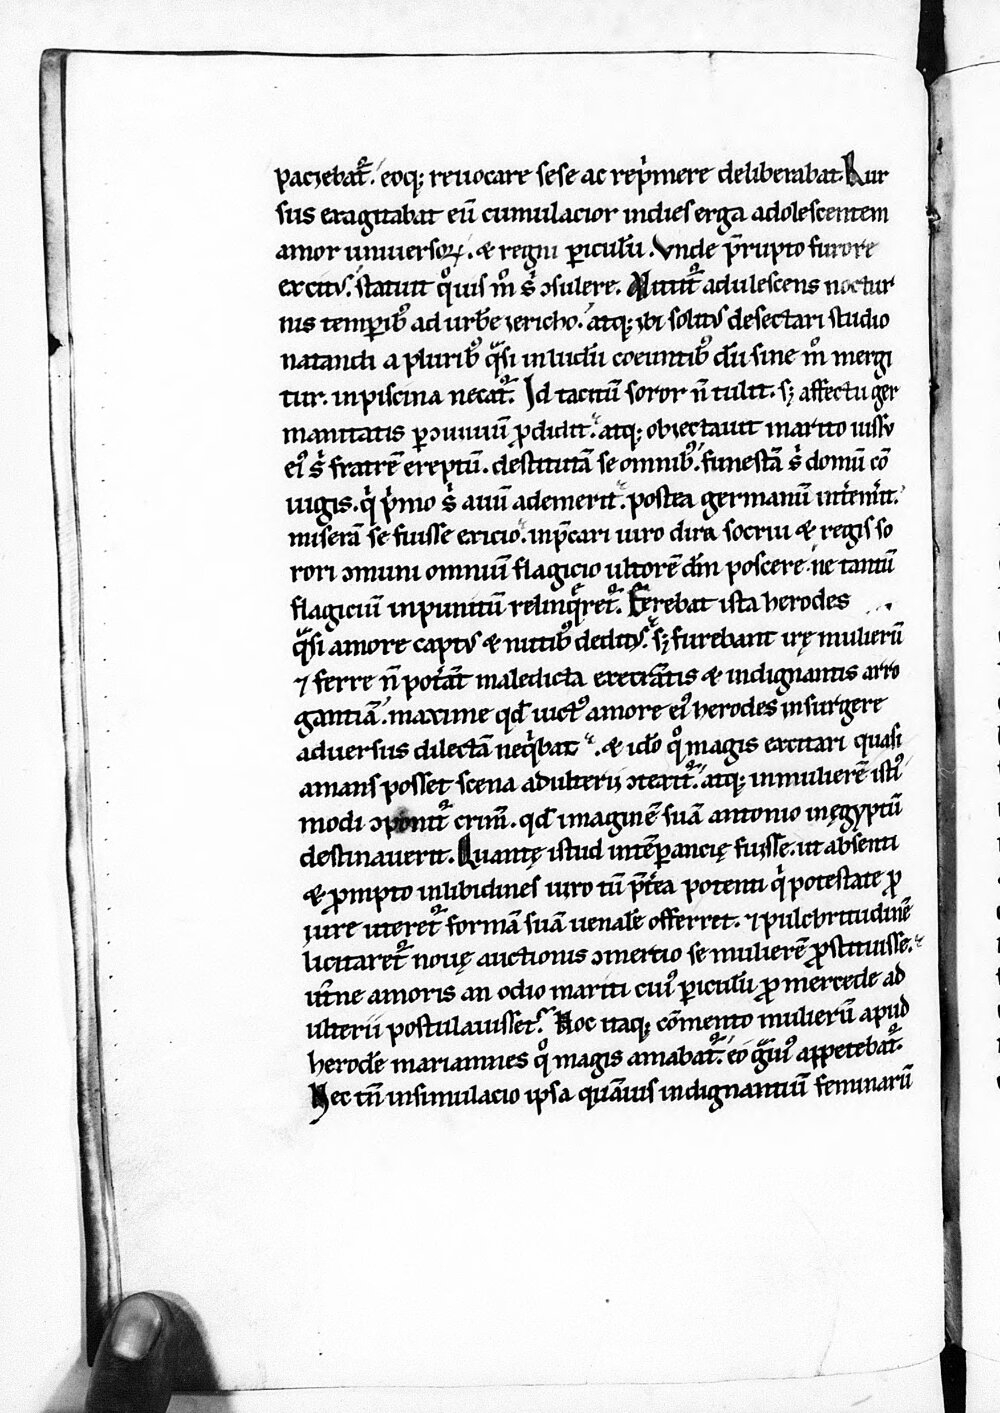 paciebat᷑. eoq; reuocare sese ac rep̍mere deliberabat. Rur
sus exagitabat eū cumulacior indies erga adolescentem
amor uniuersoꝝ. & regni ꝑiculū. Vnde p̄rupto furore
excitꝰ. statuit qͦuis mͦ s̍ ɔsulere. Mittit᷑ adulescens noctur
nis temꝑibꝰ ad urbē iericho. atq; ibi solitꝰ desectari studio
natandi a pluribꝰ qͣsi in ludū coeuntibꝰ dū sine mͦ mergi
tur. in piscina necat᷑. Id tacitū soror ñ tulit. sꝫ affectu ger
manitatis ꝓdidit. atq; obiectauit marito iussu
eiꝰ s̍ fratrē ereptū. destitutā se omnibꝰ. funestā s̍ domū cō
iugis. q̍ p̍mo s̍ auū ademerit. postea germanū int̍em̍it.
miserā se fuisse ericio. inp̄cari uiro dira socrui & regis so
rori ɔmuni omniū flagicio ultorē dm̄ poscere. ne tantū
flagiciū inpunitū relinq̄ret᷑. Ferebat ista herodes
qͣsi amore captꝰ & nutibꝰ deditꝰ. sꝫ furebant irę mulierū
⁊ ferre ñ pot̍āt maledicta execrātis & indignantis arro
gantiā. maxime qd̄ uictꝰ amore eiꝰ herodes insurgere
aduersus dilectā neq̍bat. & idō qͦ magis excitari quasi
amans posset scena adulterij ɔterit᷑. atq; in mulierē istiꝰ
modi ɔponit᷑ crim̄. qd̄ imaginē suā antonio in ęgyptū
destinauerit. Quantę istud intēꝑancię fuisse. ut absenti
& ꝓmpto in libidines uiro tū p̄t̍ea potenti q̍ potestate ꝓ
iure uteret᷑ formā suā uenalē offerret. ⁊ pulchritudinē
licitaret᷑ nouę auctionis ɔmertio se mulierē ꝓstituisse.
ut̍ne amoris an odio mariti cuiꝰ ꝑiculū ꝓ mercede ad
ulterii postulauisset. Hoc itaq; cōmento mulierū apud
herodē mariamnes qͦ magis amabat᷑. eo gͣuiꝰ appetebat᷑.
Nec tn̄ insimulacio ipsa quāuis indignantiū feminarū